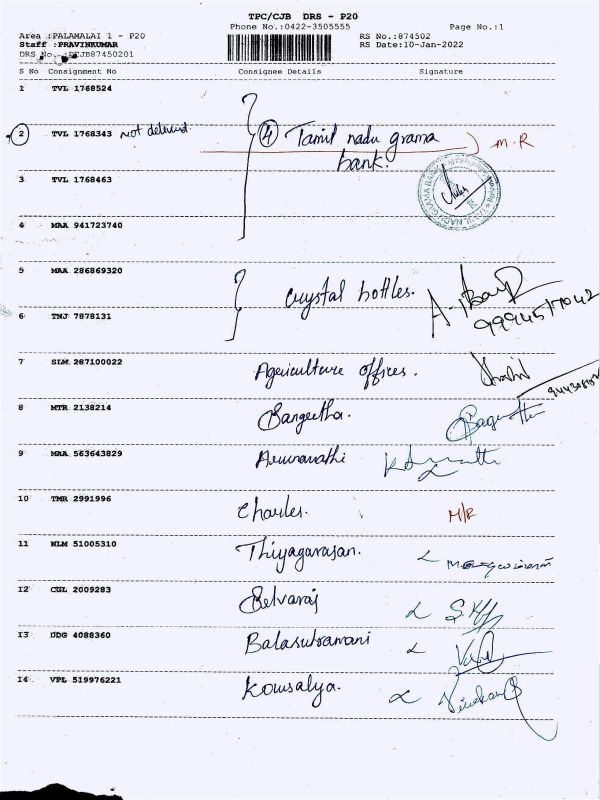 TPC/CJB DRS - P20
Phone No.:0422-3505555 Page No.:1
Area :PALAMALAI 1 - P20 RS No.:874502
Staff :PRAVINKUMAR RS Date:10-Jan-2022
DRS No. :PCJB87450201
S No Consignment No Consignee Details Signature
1 TVL 1768524
2 TVL 1768343 not delivered. 4 Tamil nadu grama M.R
bank.
3 TVL 1768463
4 MAA 941723740
5 MAA 286869320 Crystal bottles.
9994517042
6 TNJ 7878131
7 SLM 287100022 Agriculture offices.
8 MTR 2138214 Sangeetha.
9 MAA 563643829
10 TMR 2991996 Charles. M/R
11 NLM 51005310 Thiyagarasan.
12 CGL 2009283 Selvaraj
13 DDG 4088360 Balasubramani
14 VPL 519976221 Kowsalya.